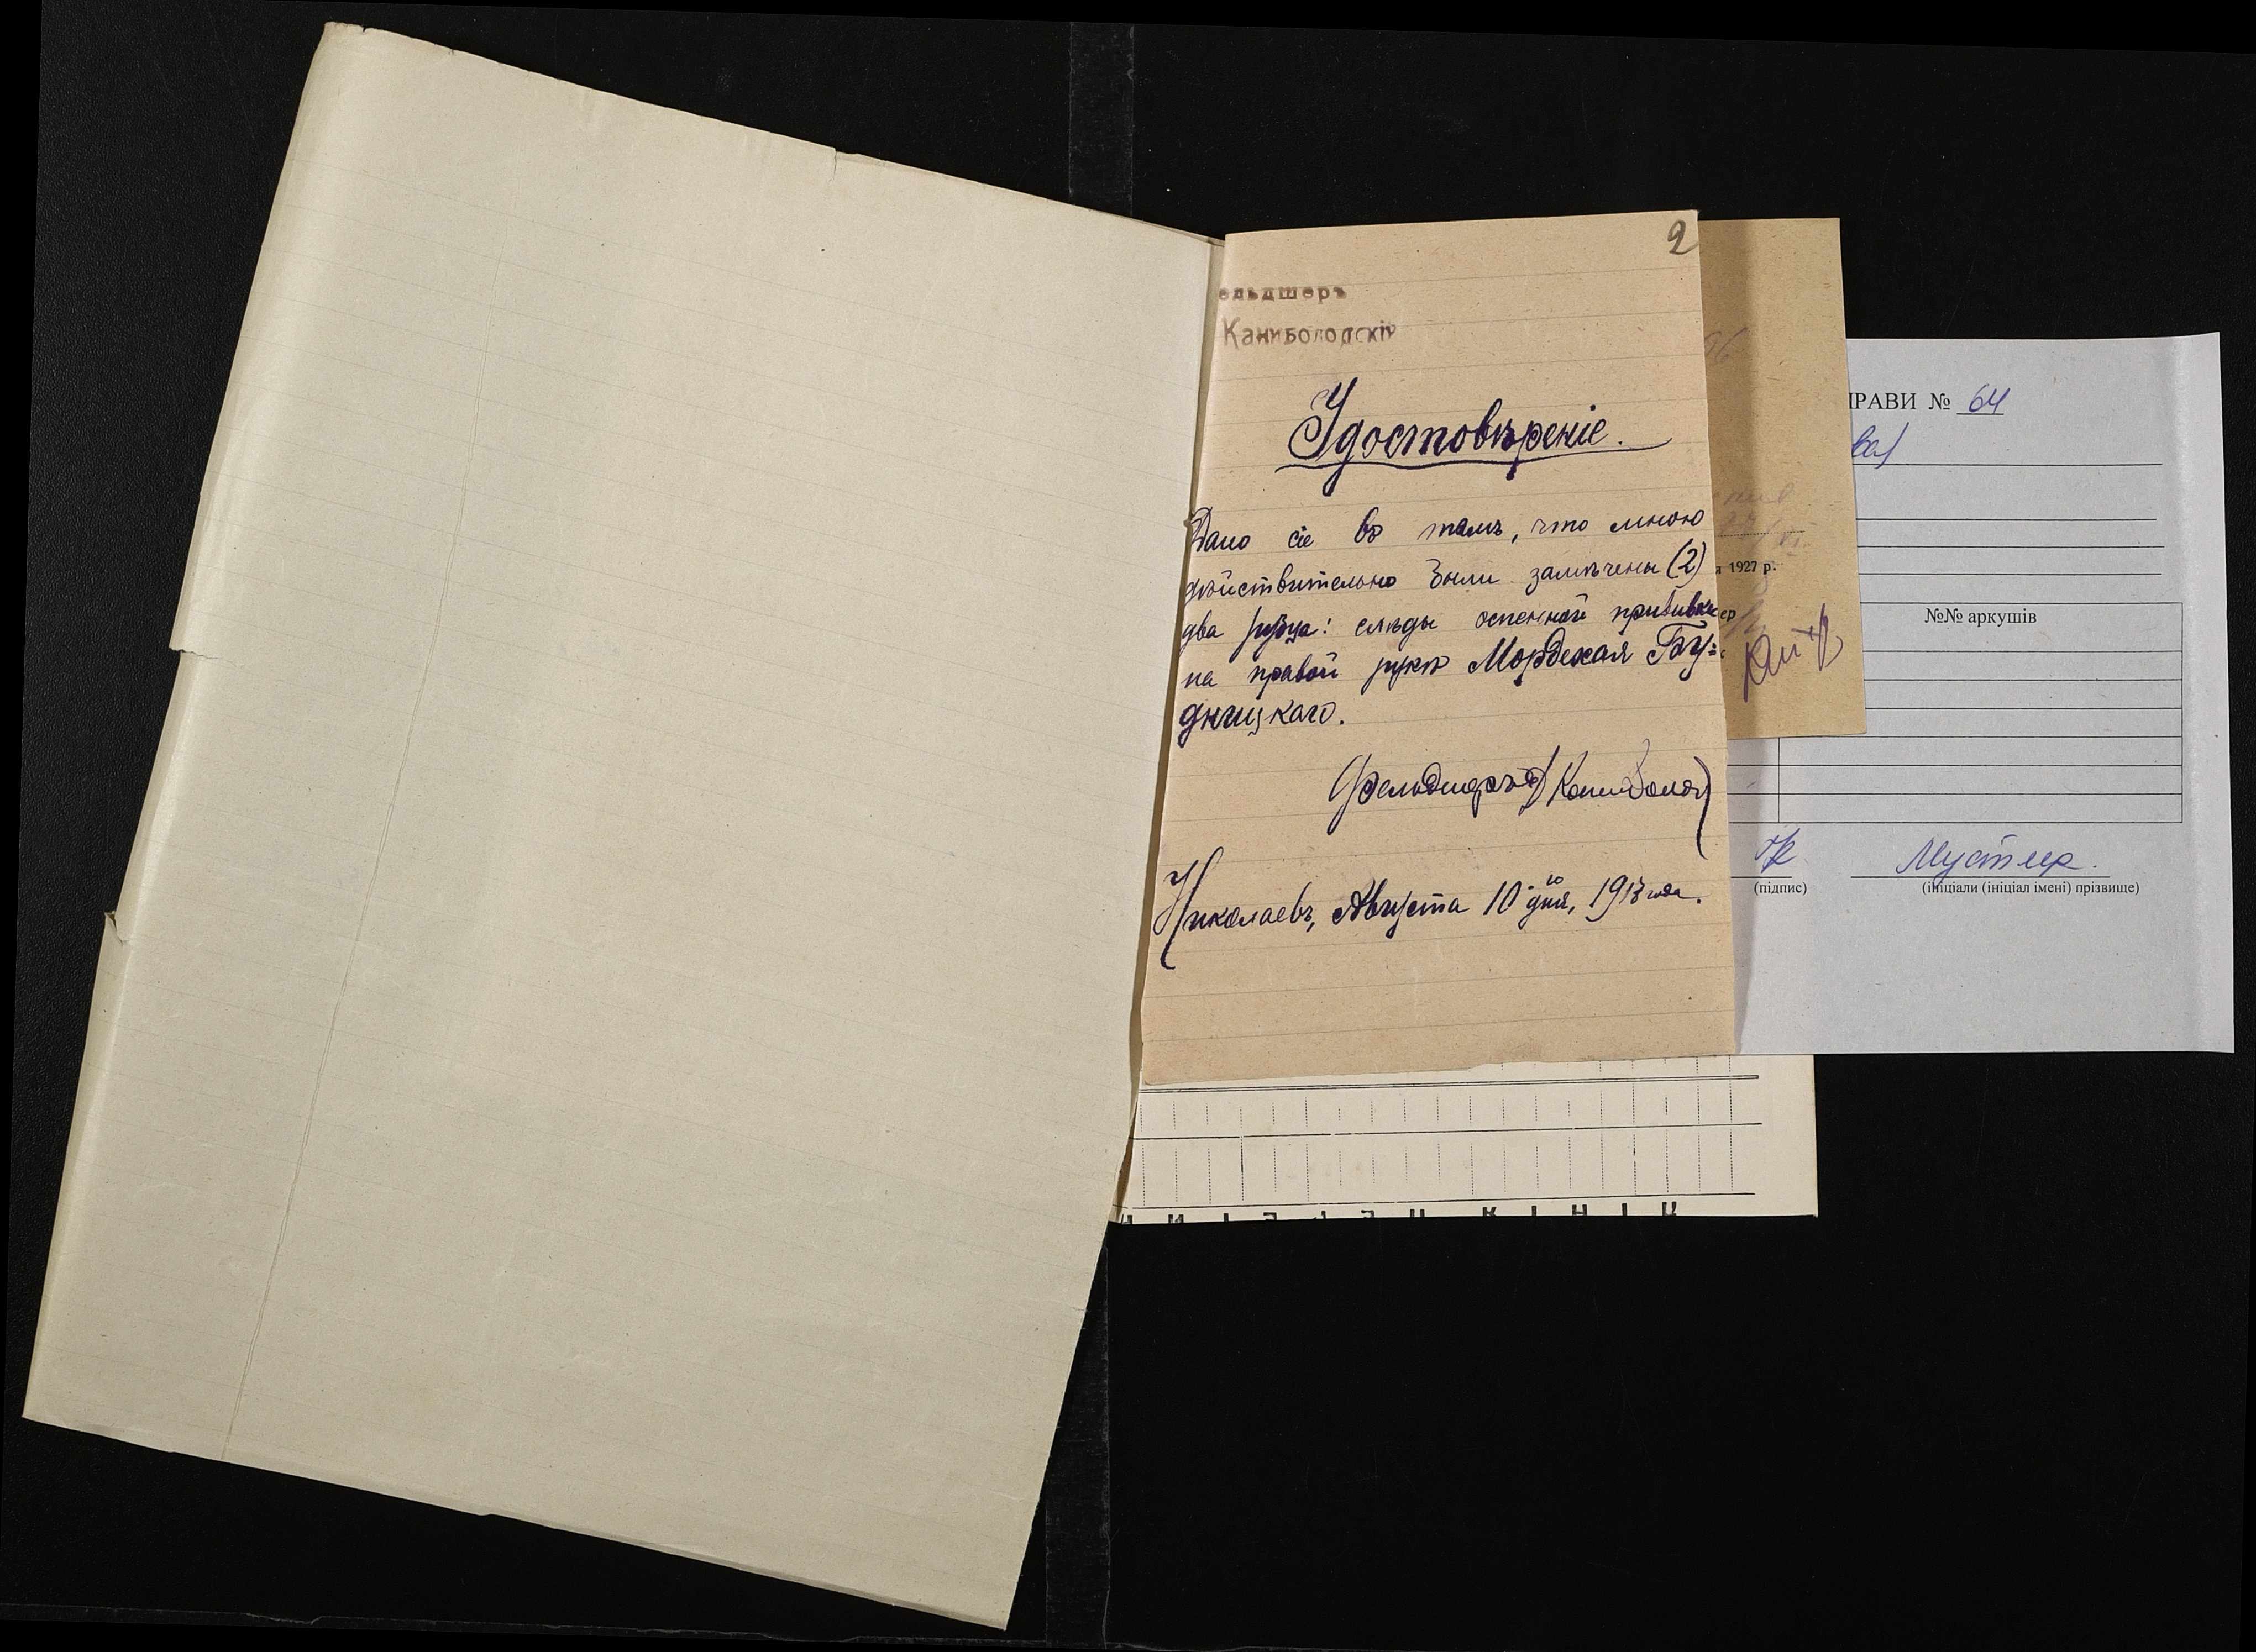 2
ельдшеръ
Каниболоцкій
Удостовѣреніе.
Дано сіе въ томъ, что мною
дѣйствительно были замѣчены (2)
два рубца: слѣды оспенной прививки
на правой рукѣ Мордехая Бу=
дницкаго.
Фельдшеръ
Николаевъ, Августа 10 го дня, 1913 года.
РАВИ № 64
1927 р.
№№ аркушів
(підпис)
(ініціали (ініціал імені) прізвище)